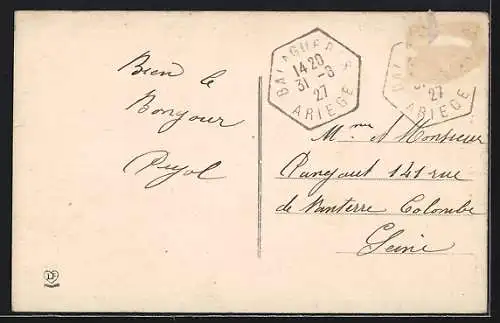 Bien le
Bonjour
Pujol
BALAGUERES
14 20
31 -8
27
ARIEGE
27
ARIEGE
Mme et Monsieur
141 rue
de Nanterre Colombe
Seine